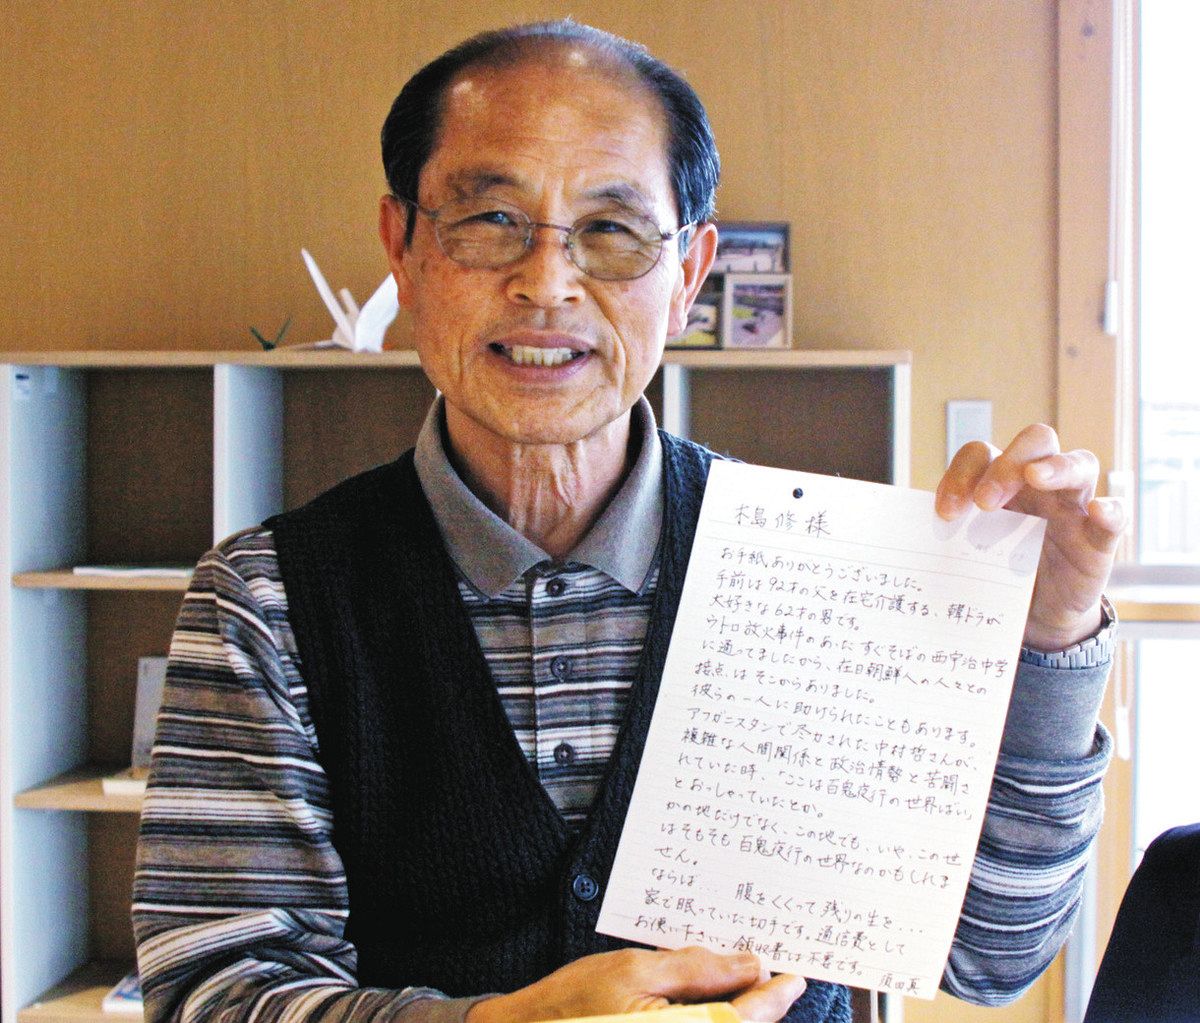 木島修様
お手紙ありがとうございました。
手前は92才の父を在宅介護する、韓ドラが
大好きな62才の男です。
ウトロ放火事件のあったすぐそばの西宇治中学
に通ってましたから、在日朝鮮人の人々との
接点はそこからありました。
彼らの一人に助けられたこともあります。
アフガニスタンで尽力された中村哲さんが、
複雑な人間関係と政治情勢と苦闘さ
れていた時、「ここは百鬼夜行の世界ばい」
とおっしゃっていたとか。
かの地だけでなく、この地でも、いや、このせ
はそもそも百鬼夜行の世界なのかもしれま
せん。
ならば… 腹をくくって残りの生を…
家で眠っていた切手です。通信費として
お使い下さい。領収書は不要です。
須田真